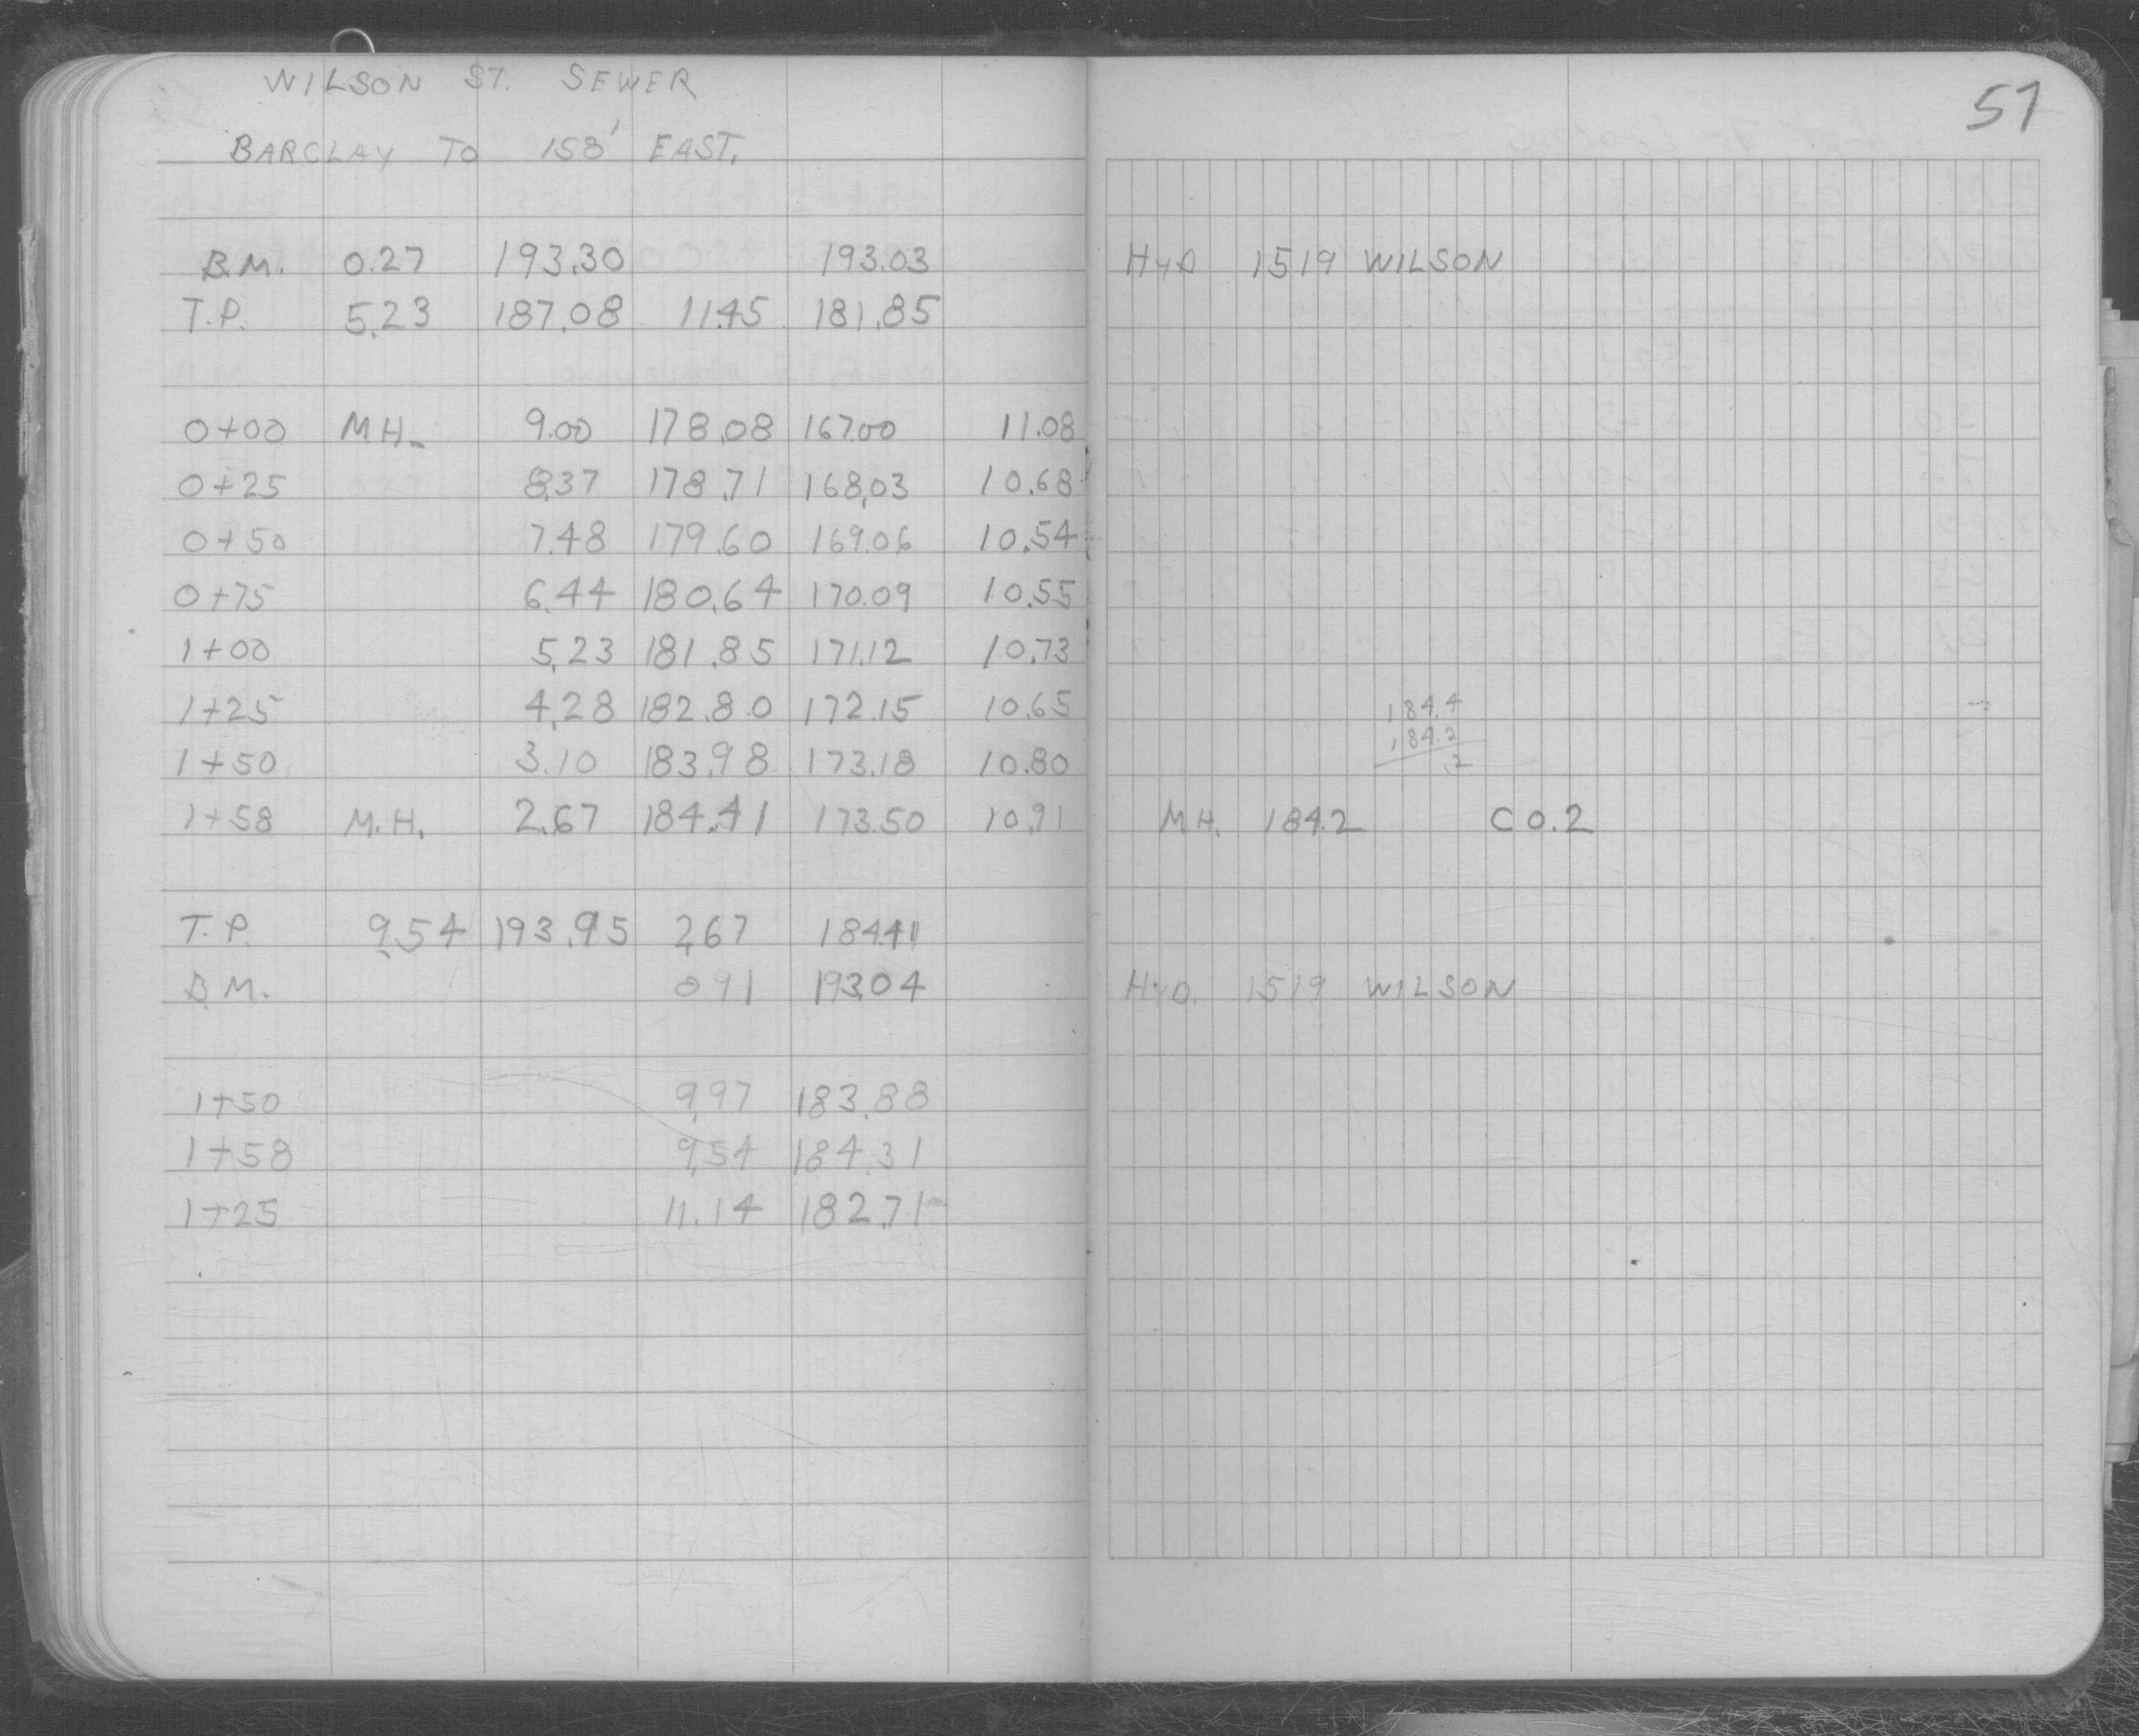 WILSON ST. SEWER
BARCLAY TO 158' EAST.
57
B.M. 0.27 193.30 193.03 HYD 1519 WILSON
T.P. 5.23 187.08 11.45 181.85
0+00 M.H. 9.00 178.08 167.00 11.08
0+25 8.37 178.71 168.03 10.68
0+50 7.48 179.60 169.06 10.54
0+75 6.44 180.64 170.09 10.55
1+00 5.23 181.85 171.12 10.73
1+25 4.28 182.80 172.15 10.65
184.4
184.2
.2
1+50 3.10 183.98 173.18 10.80
1+58 M.H. 2.67 184.41 173.50 10.91 M.H. 184.2 C0.2
T.P. 9.54 193.95 2.67 184.41
B.M. 0 91 193.04 HYD. 1519 WILSON
1+50 9.97 183.88
1+58 9.54 184.31
1+25 11.14 182.71